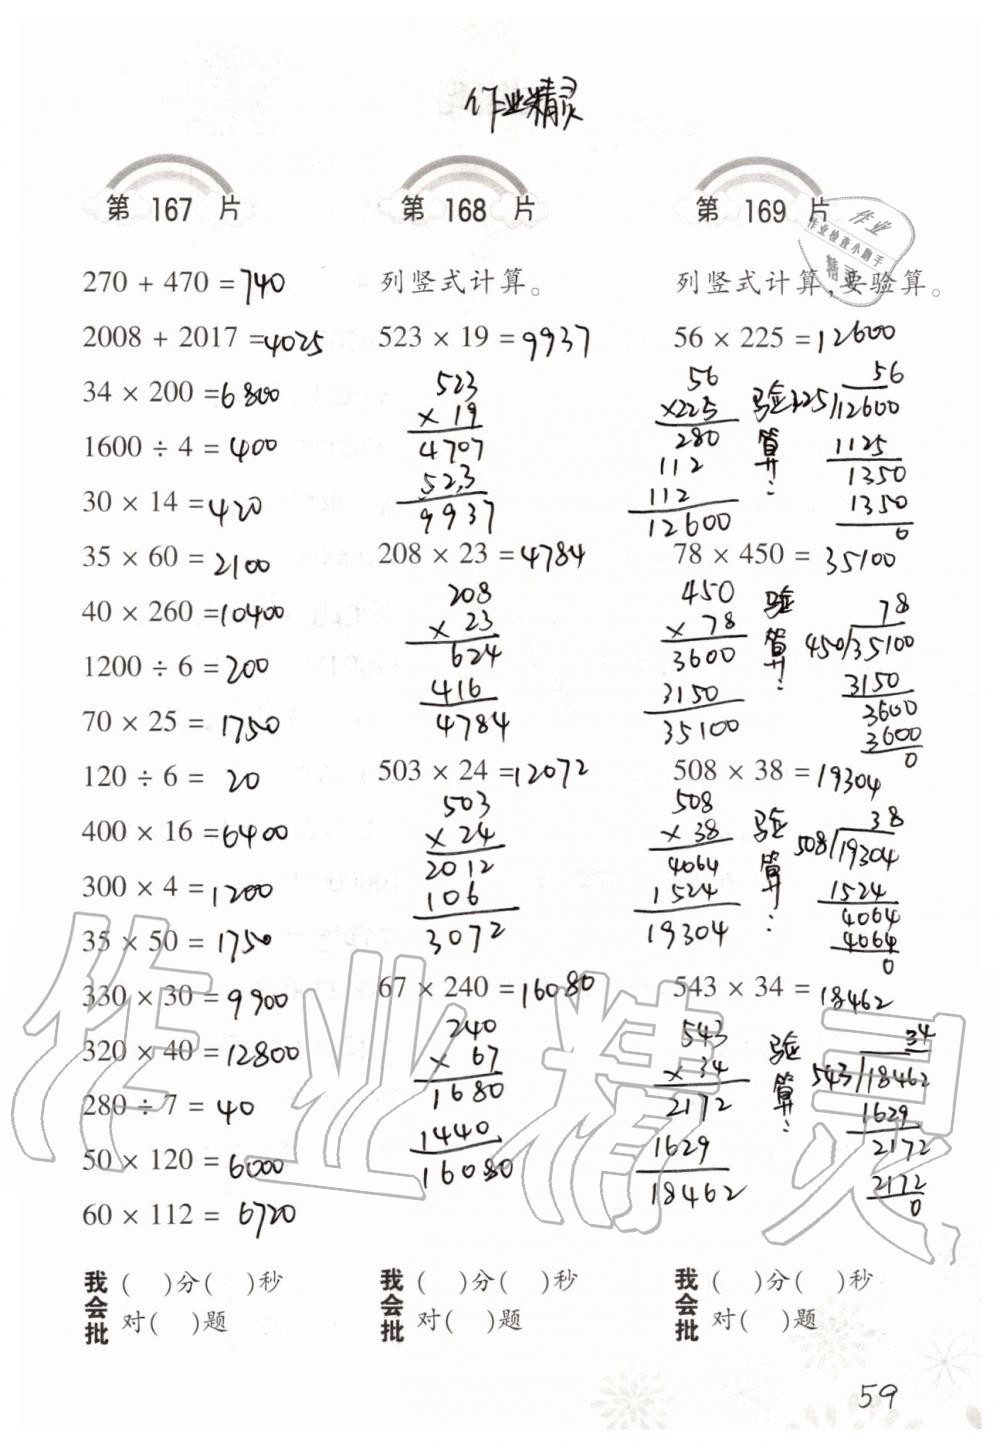 作业精灵
第 167 片
270 + 470 = 740
2008 + 2017 = 4025
34 × 200 = 6800
1600 ÷ 4 = 400
30 × 14 = 420
35 × 60 = 2100
40 × 260 = 10400
1200 ÷ 6 = 200
70 × 25 = 1750
120 ÷ 6 = 20
400 × 16 = 6400
300 × 4 = 1200
35 × 50 = 1750
330 × 30 = 9900
320 × 40 = 12800
280 ÷ 7 = 40
50 × 120 = 6000
60 × 112 = 6720
我会批
( )分( )秒
对( )题
第 168 片
列竖式计算。
523 × 19 = 9937
523
× 19
4707
523
9937
208 × 23 = 4784
208
× 23
624
416
4784
503 × 24 = 12072
503
× 24
2012
106
3072
67 × 240 = 16080
240
× 67
1680
1440
16080
我会批
( )分( )秒
对( )题
第 169 片
作业
作业检查小助手
精灵
列竖式计算,要验算。
56 × 225 = 12600
56
×225
280
112
112
12600
验算:
56
225/12600
1125
1350
1350
0
78 × 450 = 35100
450
× 78
3600
3150
35100
验算:
78
450/35100
3150
3600
3600
0
508 × 38 = 19304
508
× 38
4064
1524
19304
验算:
38
508/19304
1524
4064
4064
0
543 × 34 = 18462
543
× 34
2172
1629
18462
验算:
34
543/18462
1629
2172
2172
0
我会批
( )分( )秒
对( )题
作业精灵
59